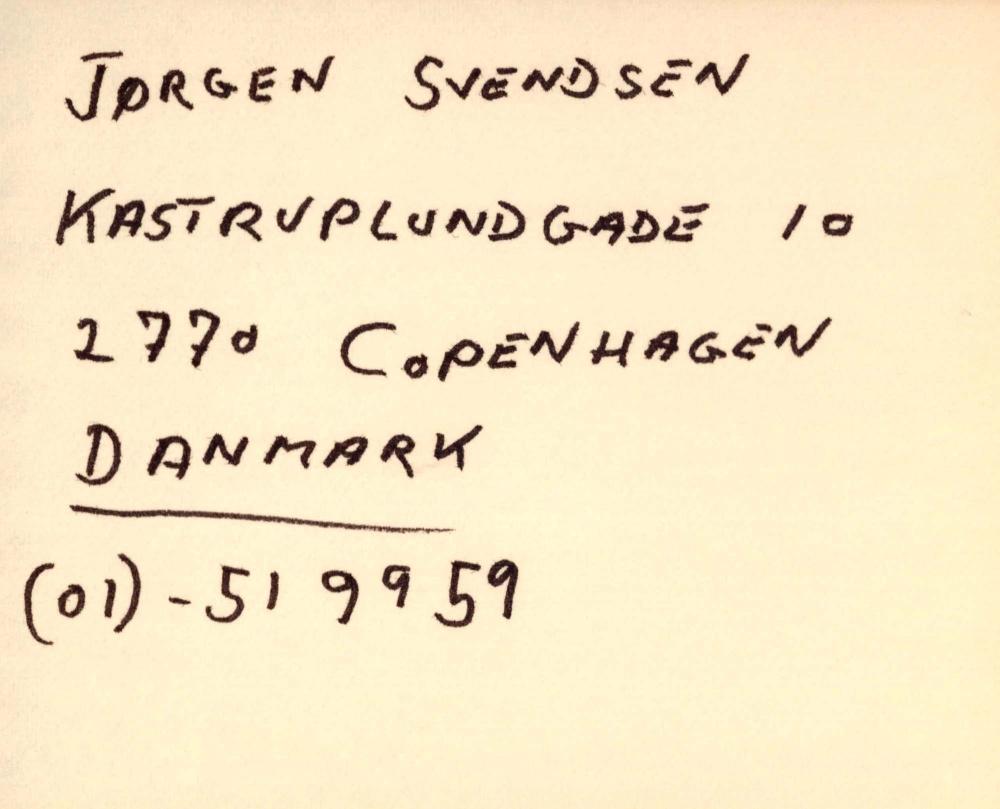 JØRGEN SVENDSEN
KASTRUPLUNDGADE 10
2770 COPENHAGEN
DANMARK
(01) - 51 99 59